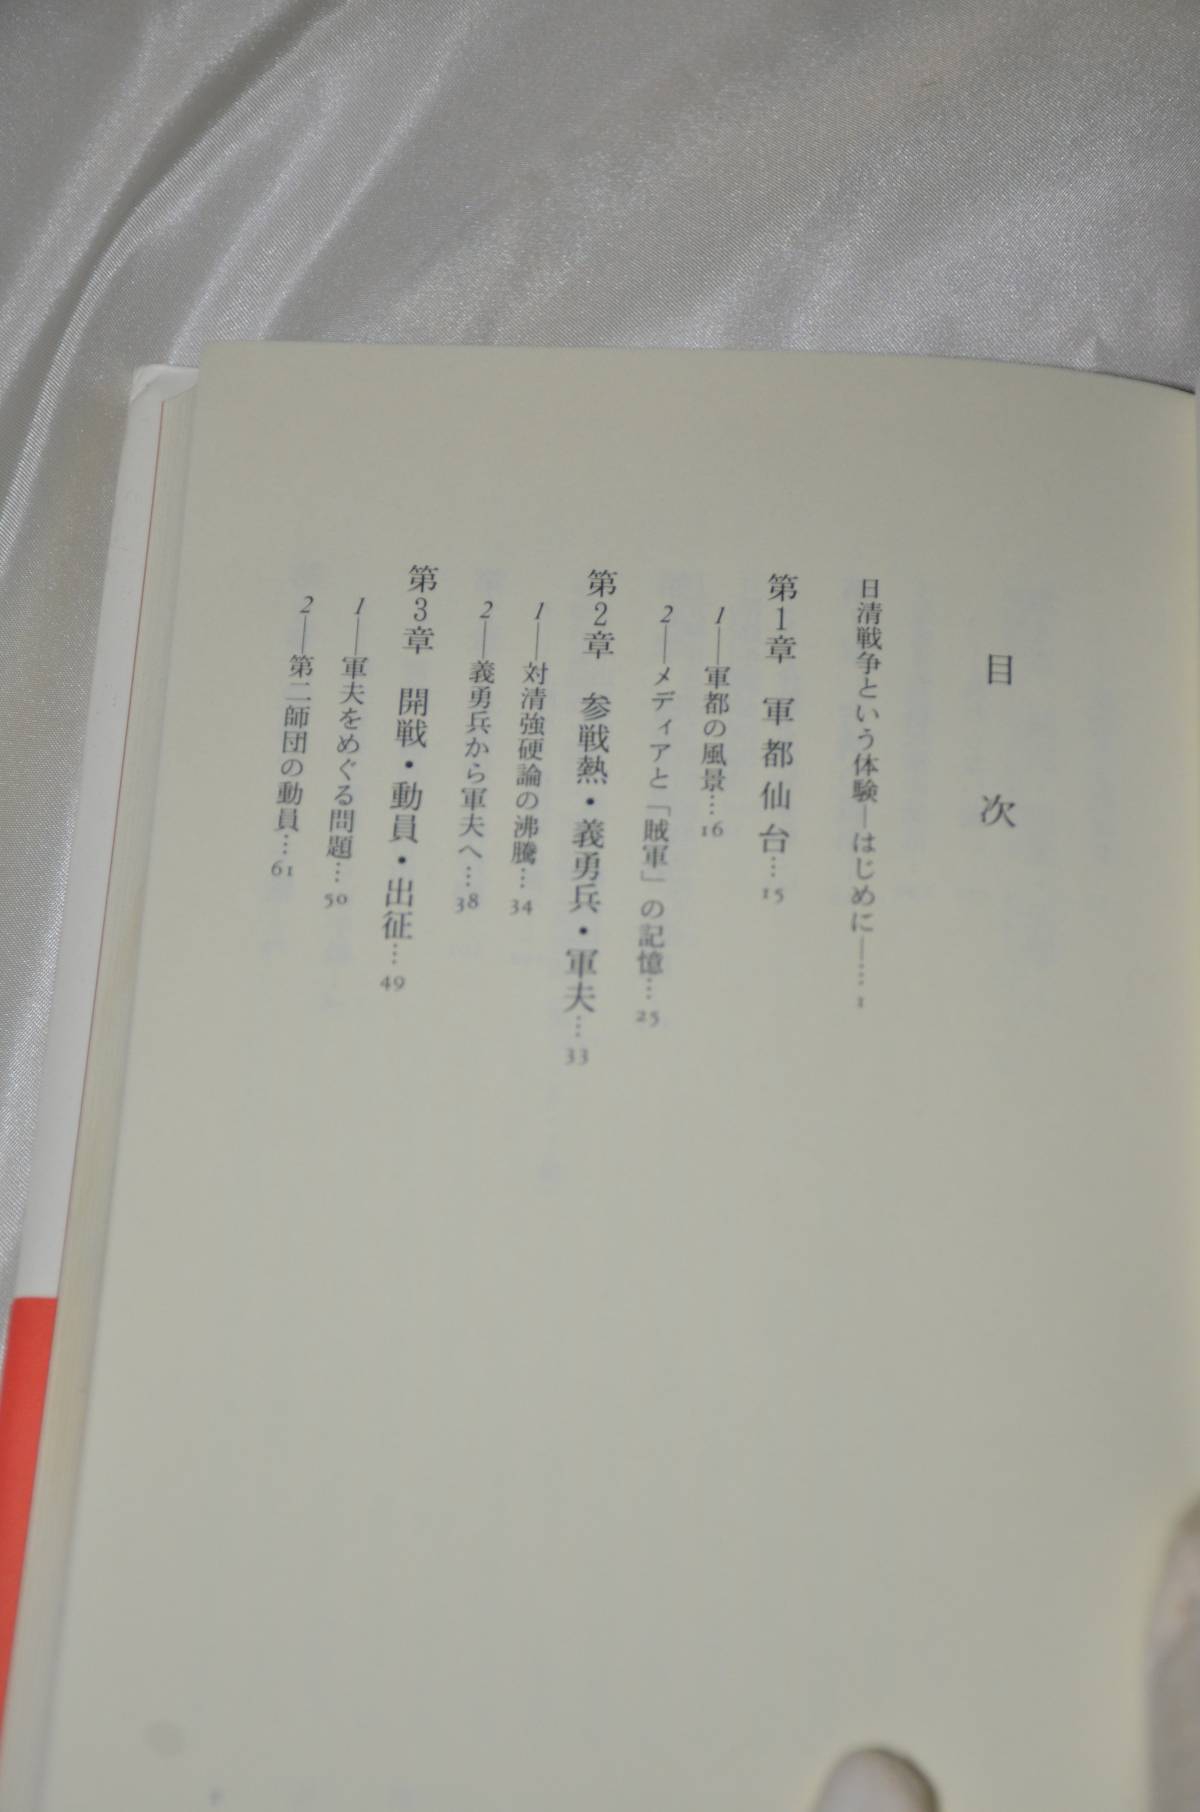 目次
日清戦争という体験―はじめに―… 1
第1章 軍都仙台… 15
1――軍都の風景… 16
2――メディアと「賊軍」の記憶… 25
第2章 参戦熱・義勇兵・軍夫… 33
1――対清強硬論の沸騰… 34
2――義勇兵から軍夫へ… 38
第3章 開戦・動員・出征… 49
1――軍夫をめぐる問題… 50
2――第二師団の動員… 61